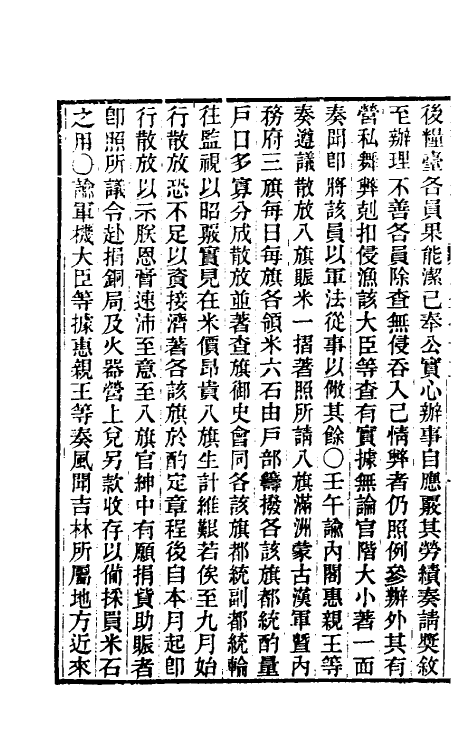 後糧臺各員果能潔己奉公實心辦事自應覈其勞績奏請獎敘
至辦理不善各員除查無侵吞入己情弊者仍照例參辦外其有
營私舞弊剋扣侵漁該大臣等查有實據無論官階大小著一面
奏聞卽將該員以軍法從事以儆其餘○壬午諭內閣惠親王等
奏遵議散放八旗賑米一摺著照所請八旗滿洲蒙古漢軍暨內
務府三旗每日每旗各領米六石由戶部籌撥各該旗都統酌量
戶口多寡分成散放並著查旗御史會同各該旗都統副都統輪
往監視以昭覈實見在米價昂貴八旗生計維艱若俟至九月始
行散放恐不足以資接濟著各該旗於酌定章程後自本月起卽
行散放以示朕恩膏速沛至意至八旗官紳中有願捐貲助賑者
卽照所議令赴捐銅局及火器營上兌另款收存以備採買米石
之用○諭軍機大臣等據惠親王等奏風聞吉林所屬地方近來